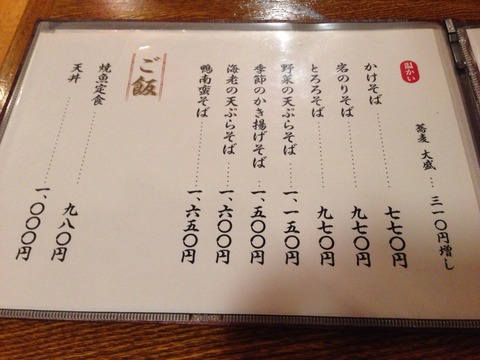 温かい
蕎麦 大盛…三一〇円増し
かけそば………七七〇円
岩のりそば………九七〇円
とろろそば………九七〇円
野菜の天ぷらそば……一、一五〇円
季節のかき揚げそば……一、五〇〇円
海老の天ぷらそば……一、六〇〇円
鴨南蛮そば………一、六五〇円
ご飯
焼魚定食………九八〇円
天丼………一、〇〇〇円